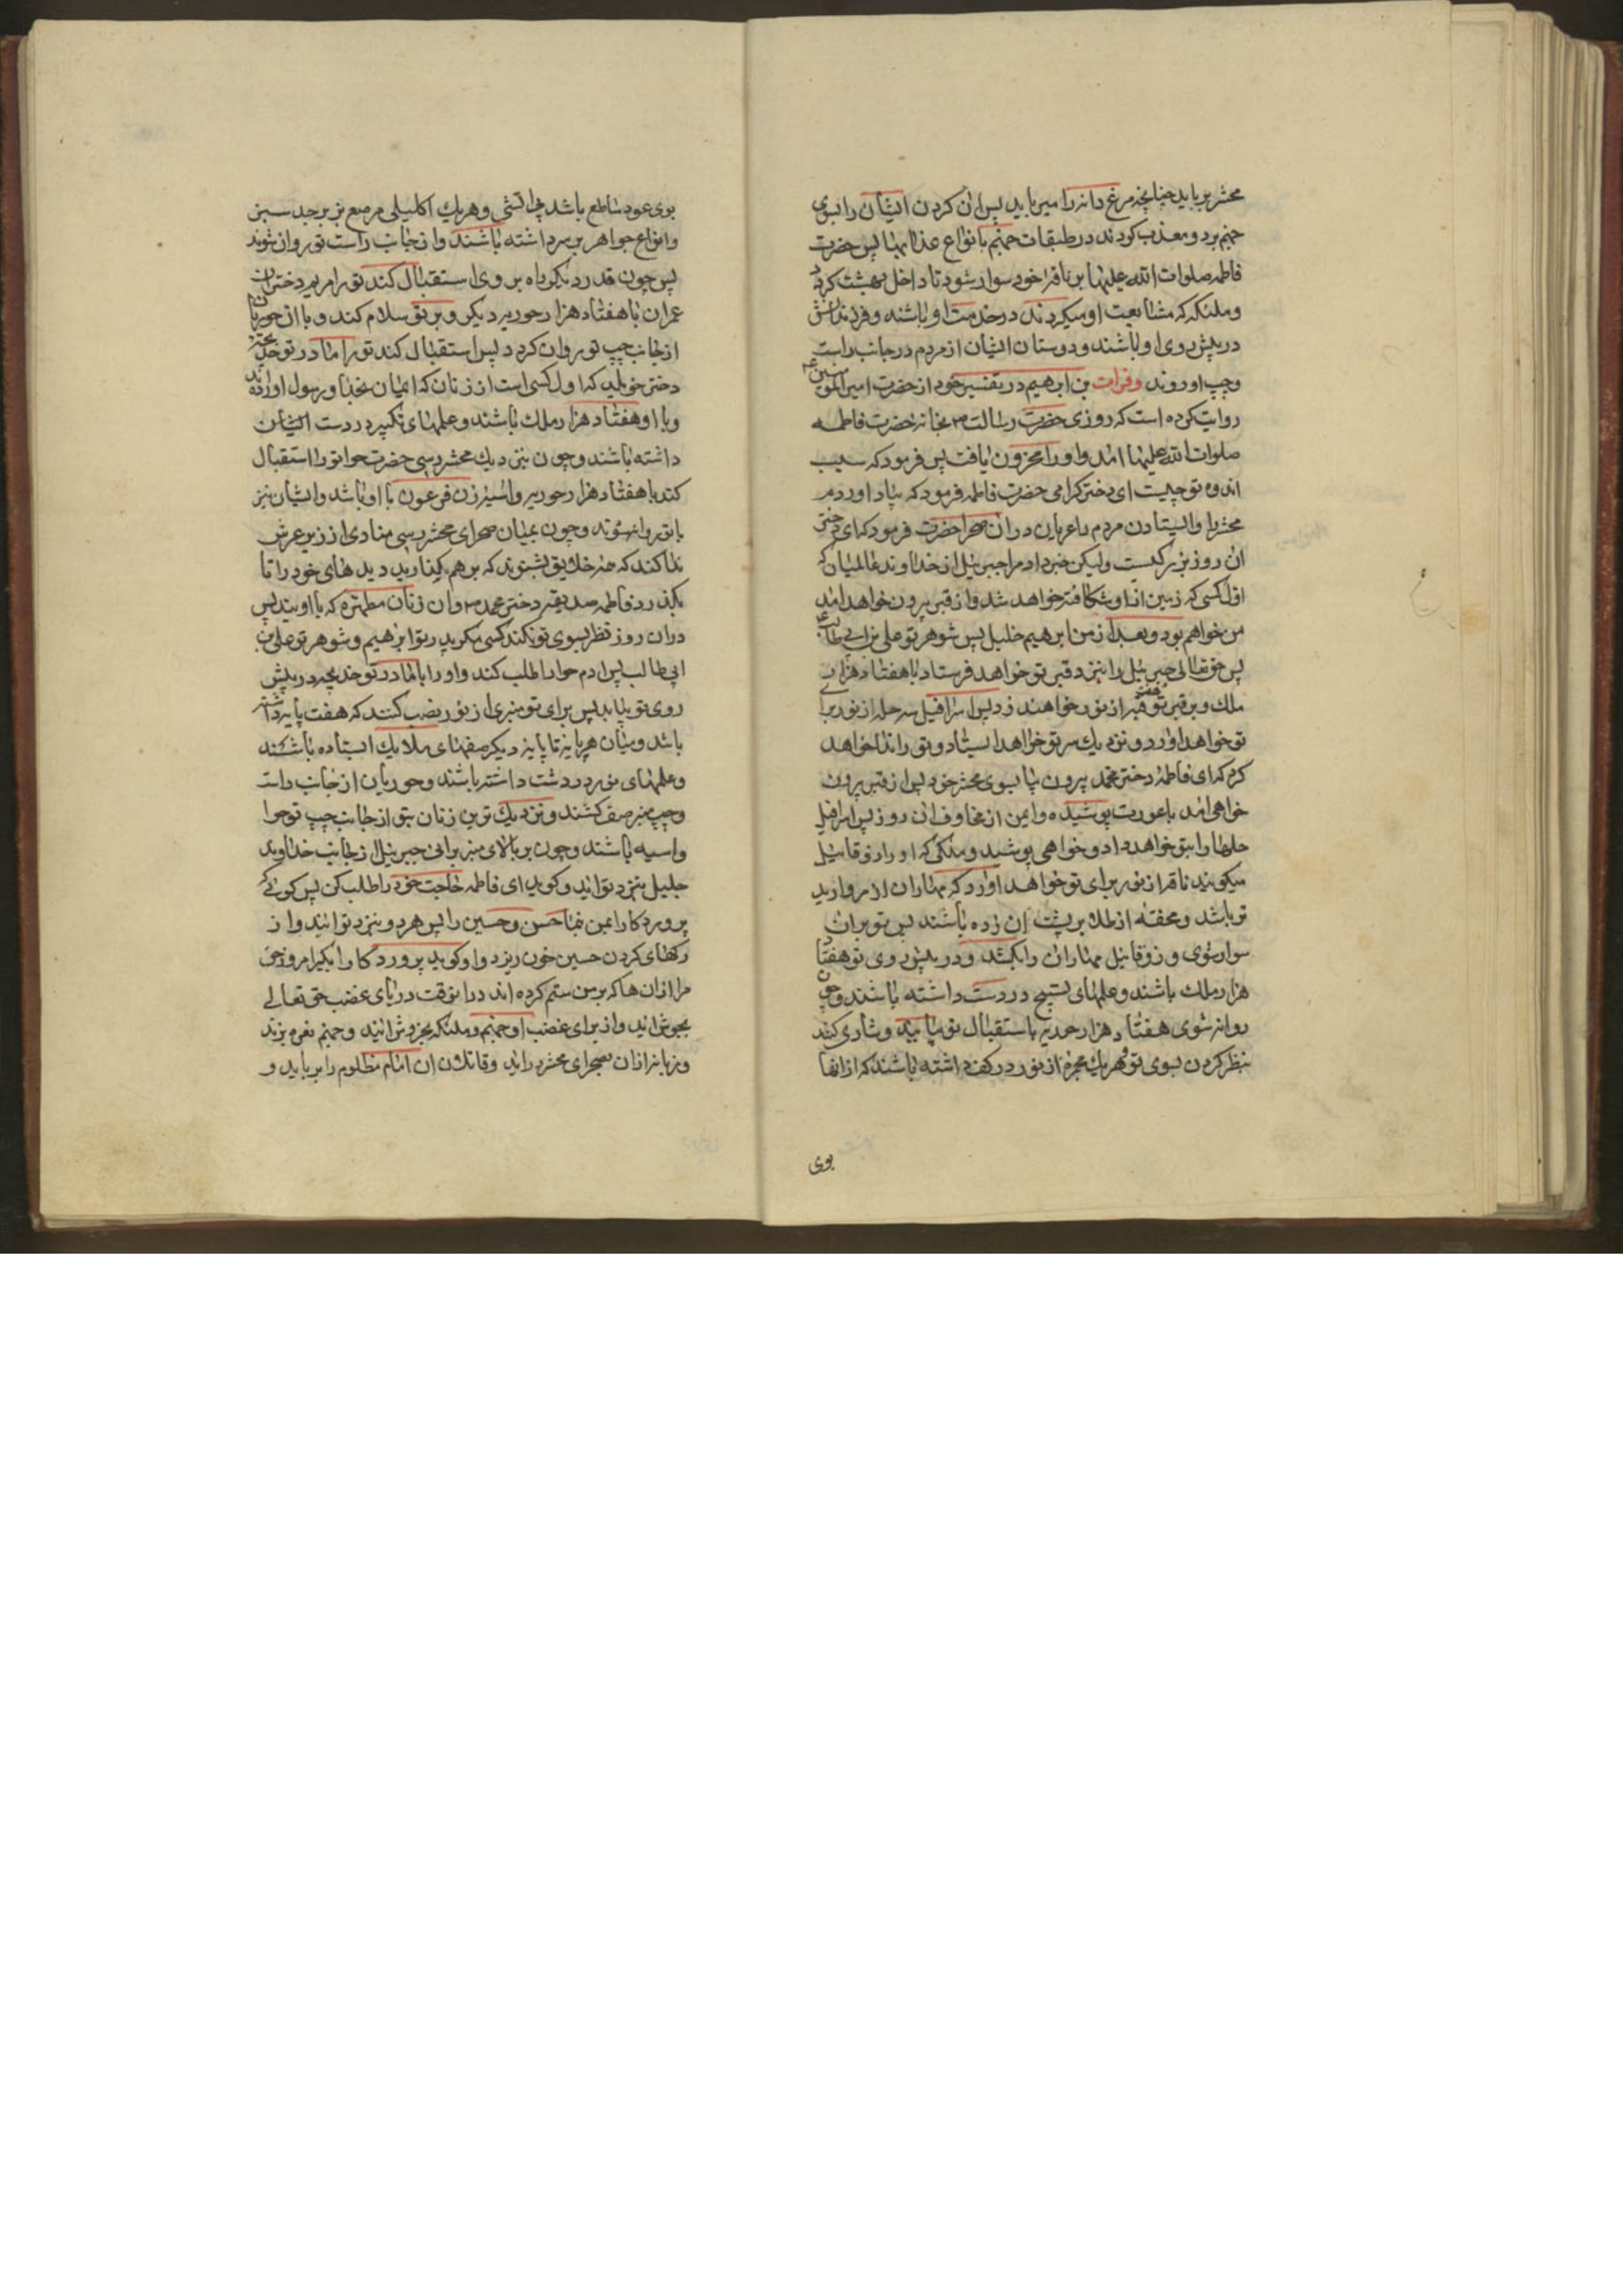 محشر برباید چنانچه مرغ دانه را میرباید پس ان کردن ایشان را بسوی
جهنم برد و معذب کودند در طبقات جهنم بانواع عذابها پس حضرت
فاطمه صلوات الله علیها بر ناقه خود سوار شود تا داخل بهشت کردد
و ملئکه که مشایعت او میکردند در خدمت او باشند و فرزندانش
در پیش روی او باشند و دوستان ایشان از مردم در جانب راست
و چپ او روند وفرات بن ابرهیم در تفسیر خود از حضرت امیر المومنین
روایت کرده است که روزی حضرت رسالت بخانه حضرت فاطمه
صلوات الله علیها امد و او را محزون یافت پس فرمود که سبب
اندوه تو چیست ای دختر کرامی حضرت فاطمه فرمود که بیاد اوردم
محشر را و ایستادن مردم را عریان در ان صحرا حضرت فرمود که ای دختر
ان روز بزرکیست ولیکن خبر داد مرا جبرئیل از خداوند عالمیان که
اول کسی که زمین از او شکافته خواهد شد و از قبر بیرون خواهد امد
من خواهم بود و بعد از من ابرهیم خلیل پس شوهر تو علی بن ابی طالب
پس حق تعالی جبرئیل را بنزد قبر تو خواهد فرستاد با هفتاد هزار
ملک و بر قبر تو هفت قبه از نور خواهند زد پس اسرافیل سه حله از نور برای
تو خواهد اورد و نزدیک سر تو خواهد ایستاد و تو را ندا خواهد
کرم که ای فاطمه دختر محمد بیرون بیا بسوی محشر خود پس از قبر بیرون
خواهی امد با عورت پوشیده و ایمن از مخاوف ان روز پس اسرافیل
حلها را بتو خواهد داد و خواهی پوشید و ملکی که او را زوقائیل
میکویند ناقه از نور برای تو خواهد اورد که مهاران از مروارید
تر باشد و محفه از طلا بر پشت ان زده باشند پس تو بر ان
سوار شوی و زوقائیل مهاران را بکشد و در پیش روی تو هفتاد
هزار ملک باشند و علمهای تسبیح در دست داشته باشند و چون
روانه شوی هفتاد هزار حوریه باستقبال تو بیایند و شادی کنند
بنظر کردن بسوی تو و هر یک مجمره از نور در کف داشته باشند که از انها
بوی
بوی عود ساطع باشد بی اتشی و هر یک اکلیلی مرصع بزبرجد سبز
و انواع جواهر بر سر داشته باشند و از جانب راست تو روان شوند
پس چون قدر دیکر راه بروی استقبال کنند تو را مریم دختران
عمران با هفتاد هزار حوریه دیکر و بر تو سلام کند و با ان حوریان
از جانب چپ تو روان کردد پس استقبال کند تو را مادر تو خدیجه
دختر خویلد که اول کسی است از زنان که ایمان بخدا و رسول اورده اند
و با او هفتاد هزار ملک باشند و علمهای تکبیر در دست ایشان
داشته باشند و چون بنزدیک محشر رسی حضرت حوا تو را استقبال
کند با هفتاد هزار حوریه و اسیه زن فرعون با او باشد و ایشان نیز
با تو روانه شوند و چون بمیان صحرای محشر رسی منادی از زیر عرش
ندا کند که همه خلایق بشنوند که بر هم کذارید دیدهای خود را تا
بکذرد فاطمه صدیقه دختر محمد و ان زنان مطهره که با اویند پس
در ان روز نظر بسوی تو نکند کسی مکر پدر تو ابرهیم و شوهر تو علی بن
ابی طالب پس ادم حوا را طلب کند و او را با مادر تو خدیجه در پیش
روی تو بیاید پس برای تو منبری از نور نصب کنند که هفت پایه داشته
باشد و میان هر پایه تا پایه دیکر صفهای ملایک ایستاده باشند
و علمهای نور در دست داشته باشند و حوریان از جانب راست
و چپ منبر صف کشند و نزدیک ترین زنان بتو از جانب چپ تو حوا
و اسیه باشند و چون بر بالای منبر برائی جبرئیل از جانب خداوند
جلیل بنزد تو اید و کوید ای فاطمه حاجت خود را طلب کن پس کوئی که
پروردکارا بمن نما حسن و حسین را پس هر دو بنزد تو ایند و از
رکهای کردن حسین خون ریزد و او کوید پروردکارا بکیر امروز حق
مرا از ان ها که بر من ستم کرده اند در ان وقت دریای غضب حق تعالی
بجوش اید و از برای غضب او جهنم و ملئکه بخروش ایند و جهنم نعره بزند
و زبانه از ان بصحرای محشر دراید و قاتلان ان امام مظلوم را برباید و